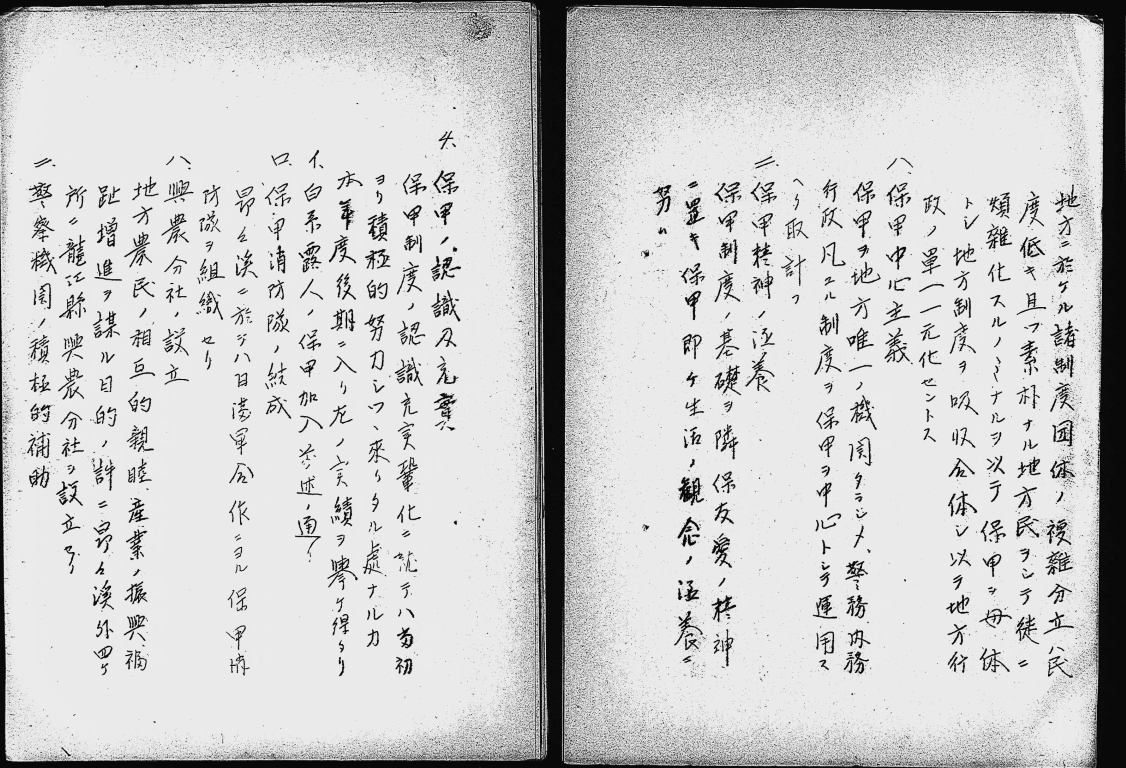 地方ニ於ケル諸制度団体ノ複雑分立ハ民
度低キ且ツ素朴ナル地方民ヲシテ徒ニ
煩雑化スルノミナルヲ以テ保甲ヲ母体
トシ地方制度ヲ吸収合体シ以テ地方行
政ノ単一一元化セントス
ハ、保甲中心主義
保甲ヲ地方唯一ノ機関タラシメ、警務内務
行政凡ユル制度ヲ保甲ヲ中心トシテ運用ス
ヘク取計フ
ニ、保甲精神ノ涵養
保甲制度ノ基礎ヲ隣保友愛ノ精神
ニ置キ保甲即ケ生活ノ観念ノ涵養ニ
努ム
4、保甲ノ認識及充実
保甲制度ノ認識充実鞏化ニ就テハ当初
ヨリ積極的努力シツヽ来リタル処ナルカ
本年度後期ニ入リ左ノ実績ヲ挙ケ得タリ
イ、白系露人ノ保甲加入 述ノ通リ
ロ、保甲消防隊ノ結成
昂々渓ニ於テハ日満軍合作ニヨル保甲消
防隊ヲ組織セリ
ハ、興農分社ノ設立
地方農民ノ相互的親睦、産業ノ振興、福
祉増進ヲ謀ル目的ノ許ニ昂々渓外四ケ
所ニ龍江縣興農分社ヲ設立セリ
ニ、警察機関ノ積極的補助